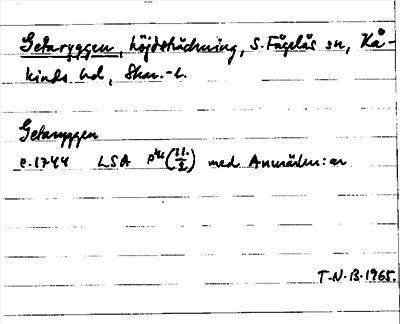 Getaryggen, höjdsträckning, S. Fågelås sn, Kå-
kinds hd, Skar.-l.
Getaryggen
c. 1744 LSA med Anmärkn:ar
T-N.B. 1965.